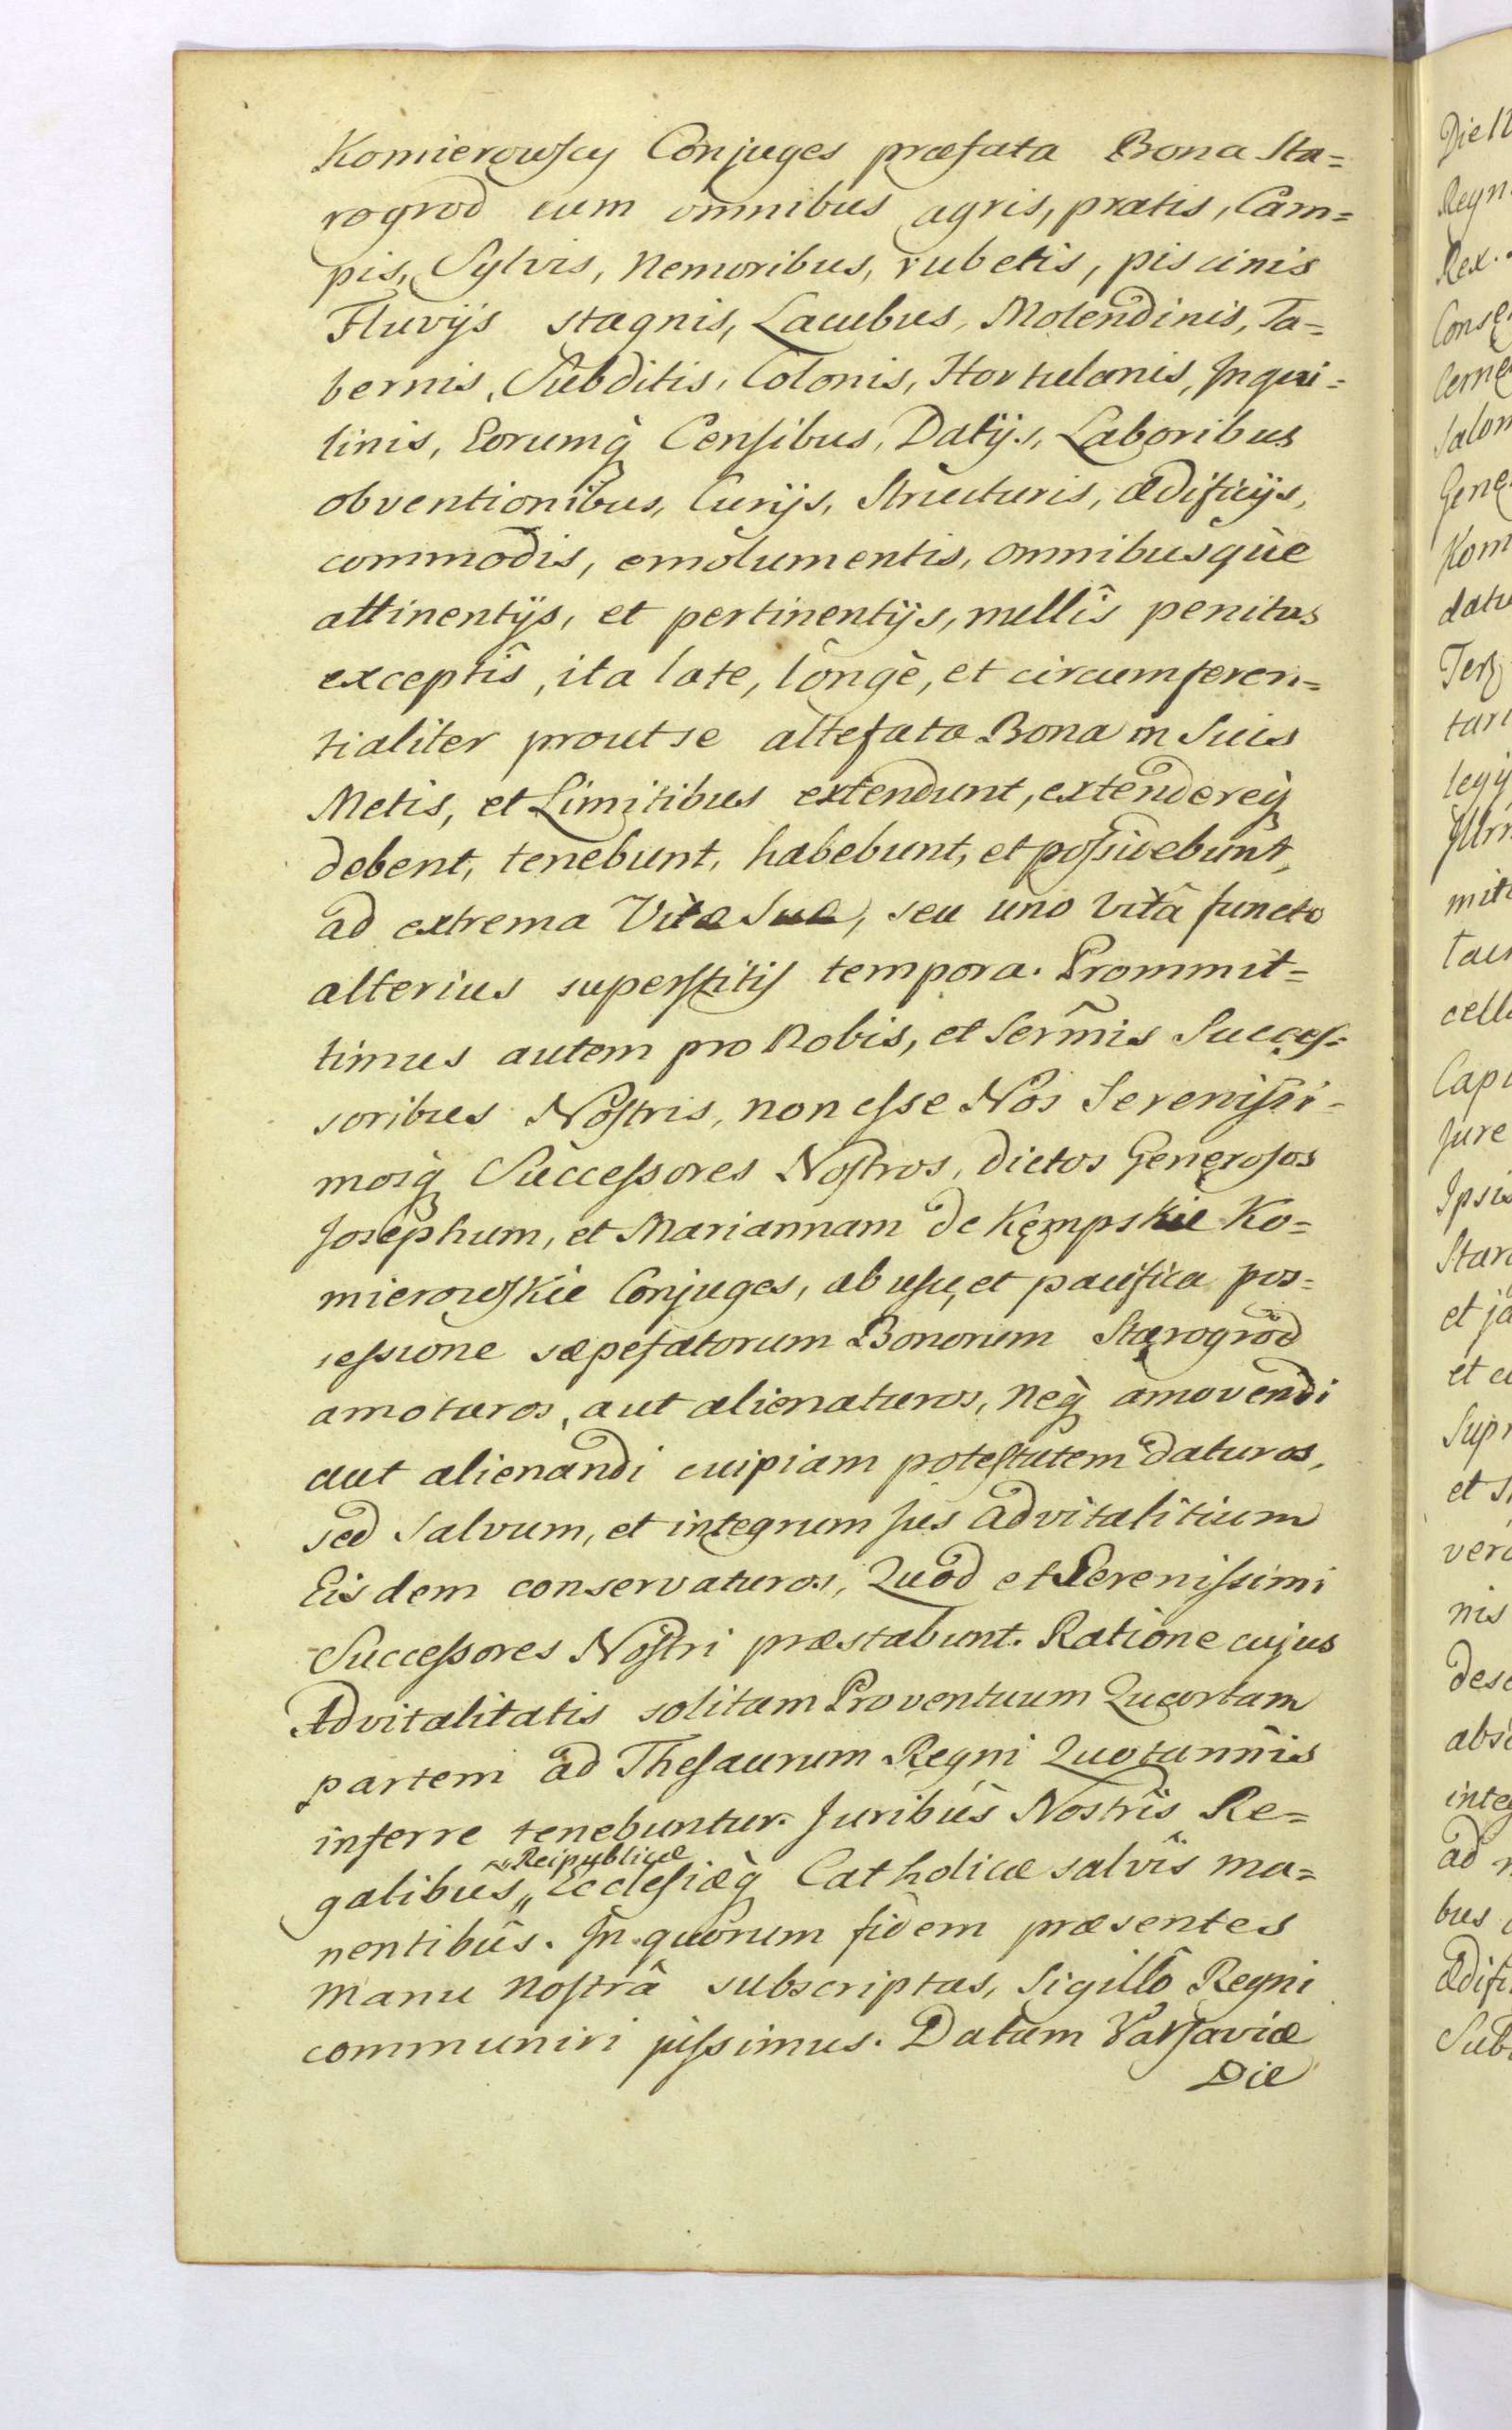 Komierowscy Conjuges præfata Bona Sta=
rogrod cum omnibus agris, pratis, Cam=
pis, Sylvis, Nemoribus, rubetis, piscinis
Fluvijs stagnis, Lacubus, Molendinis, Ta=
bernis, Subditis, Colonis, Hortulanis, Inqui=
linis, Eorumq̀ Censibus, Datijs, Laboribus
obventionibus, Curijs, Structuris, ædificijs,
commodis, emolumentis, omnibusquè
attinentijs, et pertinentijs, nullîs penitus
exceptîs, ita late, longè, et circumferen=
tialiter prout se altefata Bona in Suis
Metis, et Limitibus extendunt, extendereq̀
debent, tenebunt, habebunt, et possidebunt,
ad extrema Vitæ Suæ, seu uno vitâ functo
alterius superstitis tempora. Prommit=
timus autem pro Nobis, et Serm̃is Succes=
soribus Nostris, non esse Nos Serenissi=
mosq̀ Successores Nostros, dictos Generosos
Josephum, et Mariannam de Kempskie Ko=
mierowskie Conjuges, ab usu, et pacifica pos=
sessione sæpefatorum Bonorum Starogrod
amoturos, aut alienaturos, neq̀ amovendi
aut alienandi cuipiam potestatem daturos,
sed Salvum, et integrum jus advitalitium
Eisdem conservaturos, Quod et Serenissimi
Successores Nostri præstabunt. Ratione cujus
Advitalitatis solitam Proventuum Quartam
partem ad Thesaurum Regni Quotannis
inferre tenebuntur. Juribûs Nostrîs Re=
galibus „ Reipublicæ Ecclesiæq̀ Catholicæ salvîs ma=
nentibûs. In quorum fidem præsentes
manu nostrâ subscriptas, Sigillô Regni
communiri jussimus. Datum Varsaviæ
Die
Die 12
Regn
Rex.
Gene
Kom
datu
tari
legij
mit
cell
Capi
Jure
Ipsis
Star
et ja
et cu
Sup
et
vero
nis
desc
abs
integ
ad
bus
ædifi
Sub